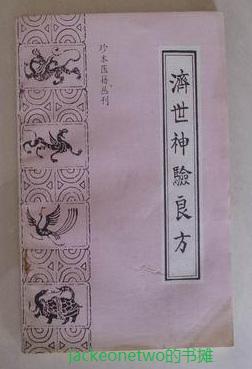 珍本医籍丛刊
濟世神驗良方
jackeonetwo的书摊